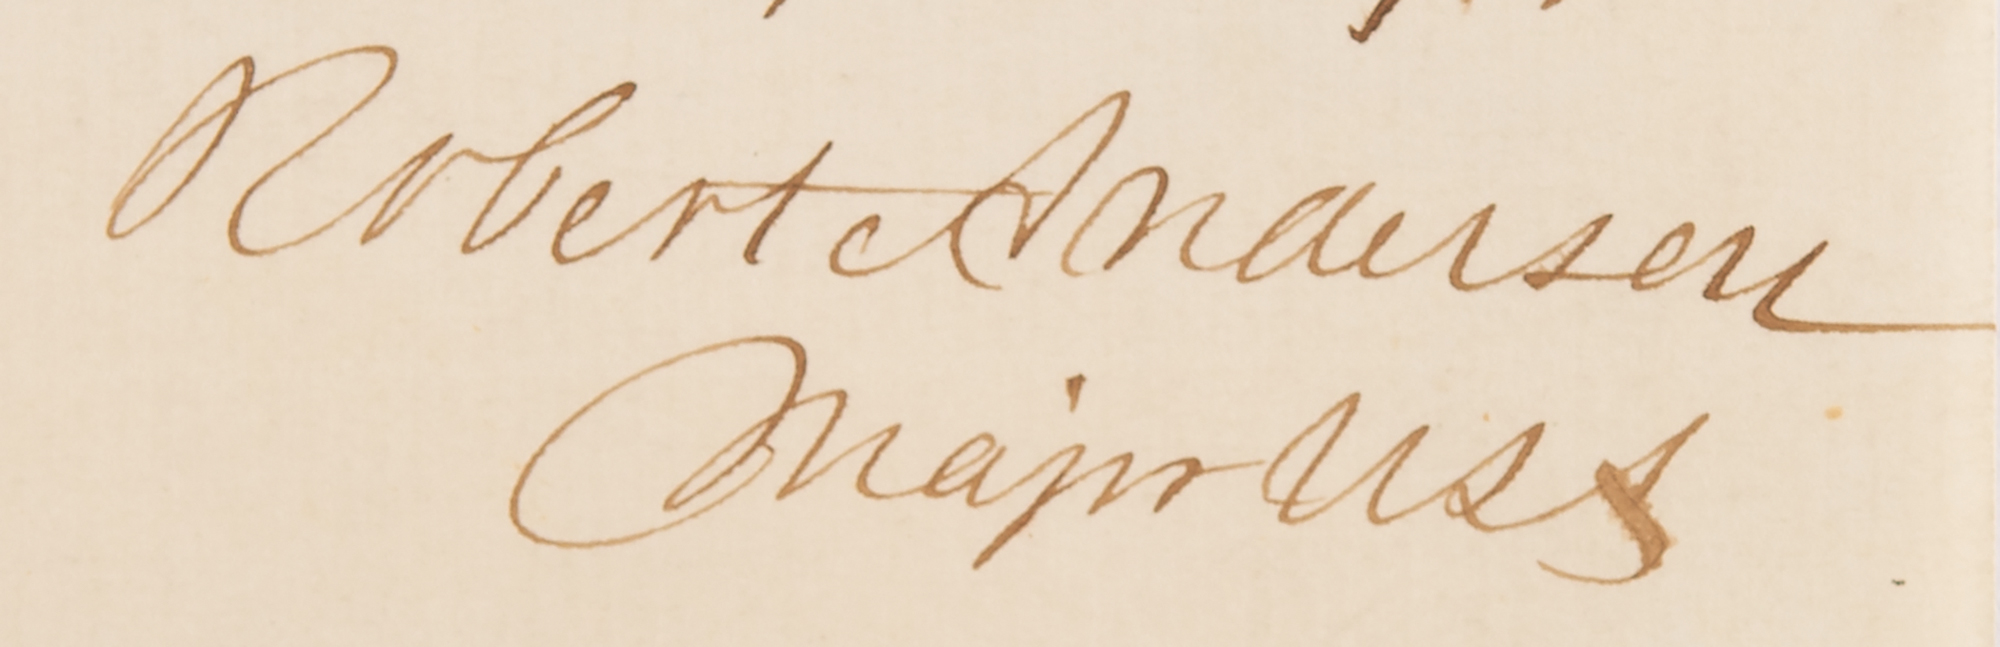 Robert Anderson
Major USA